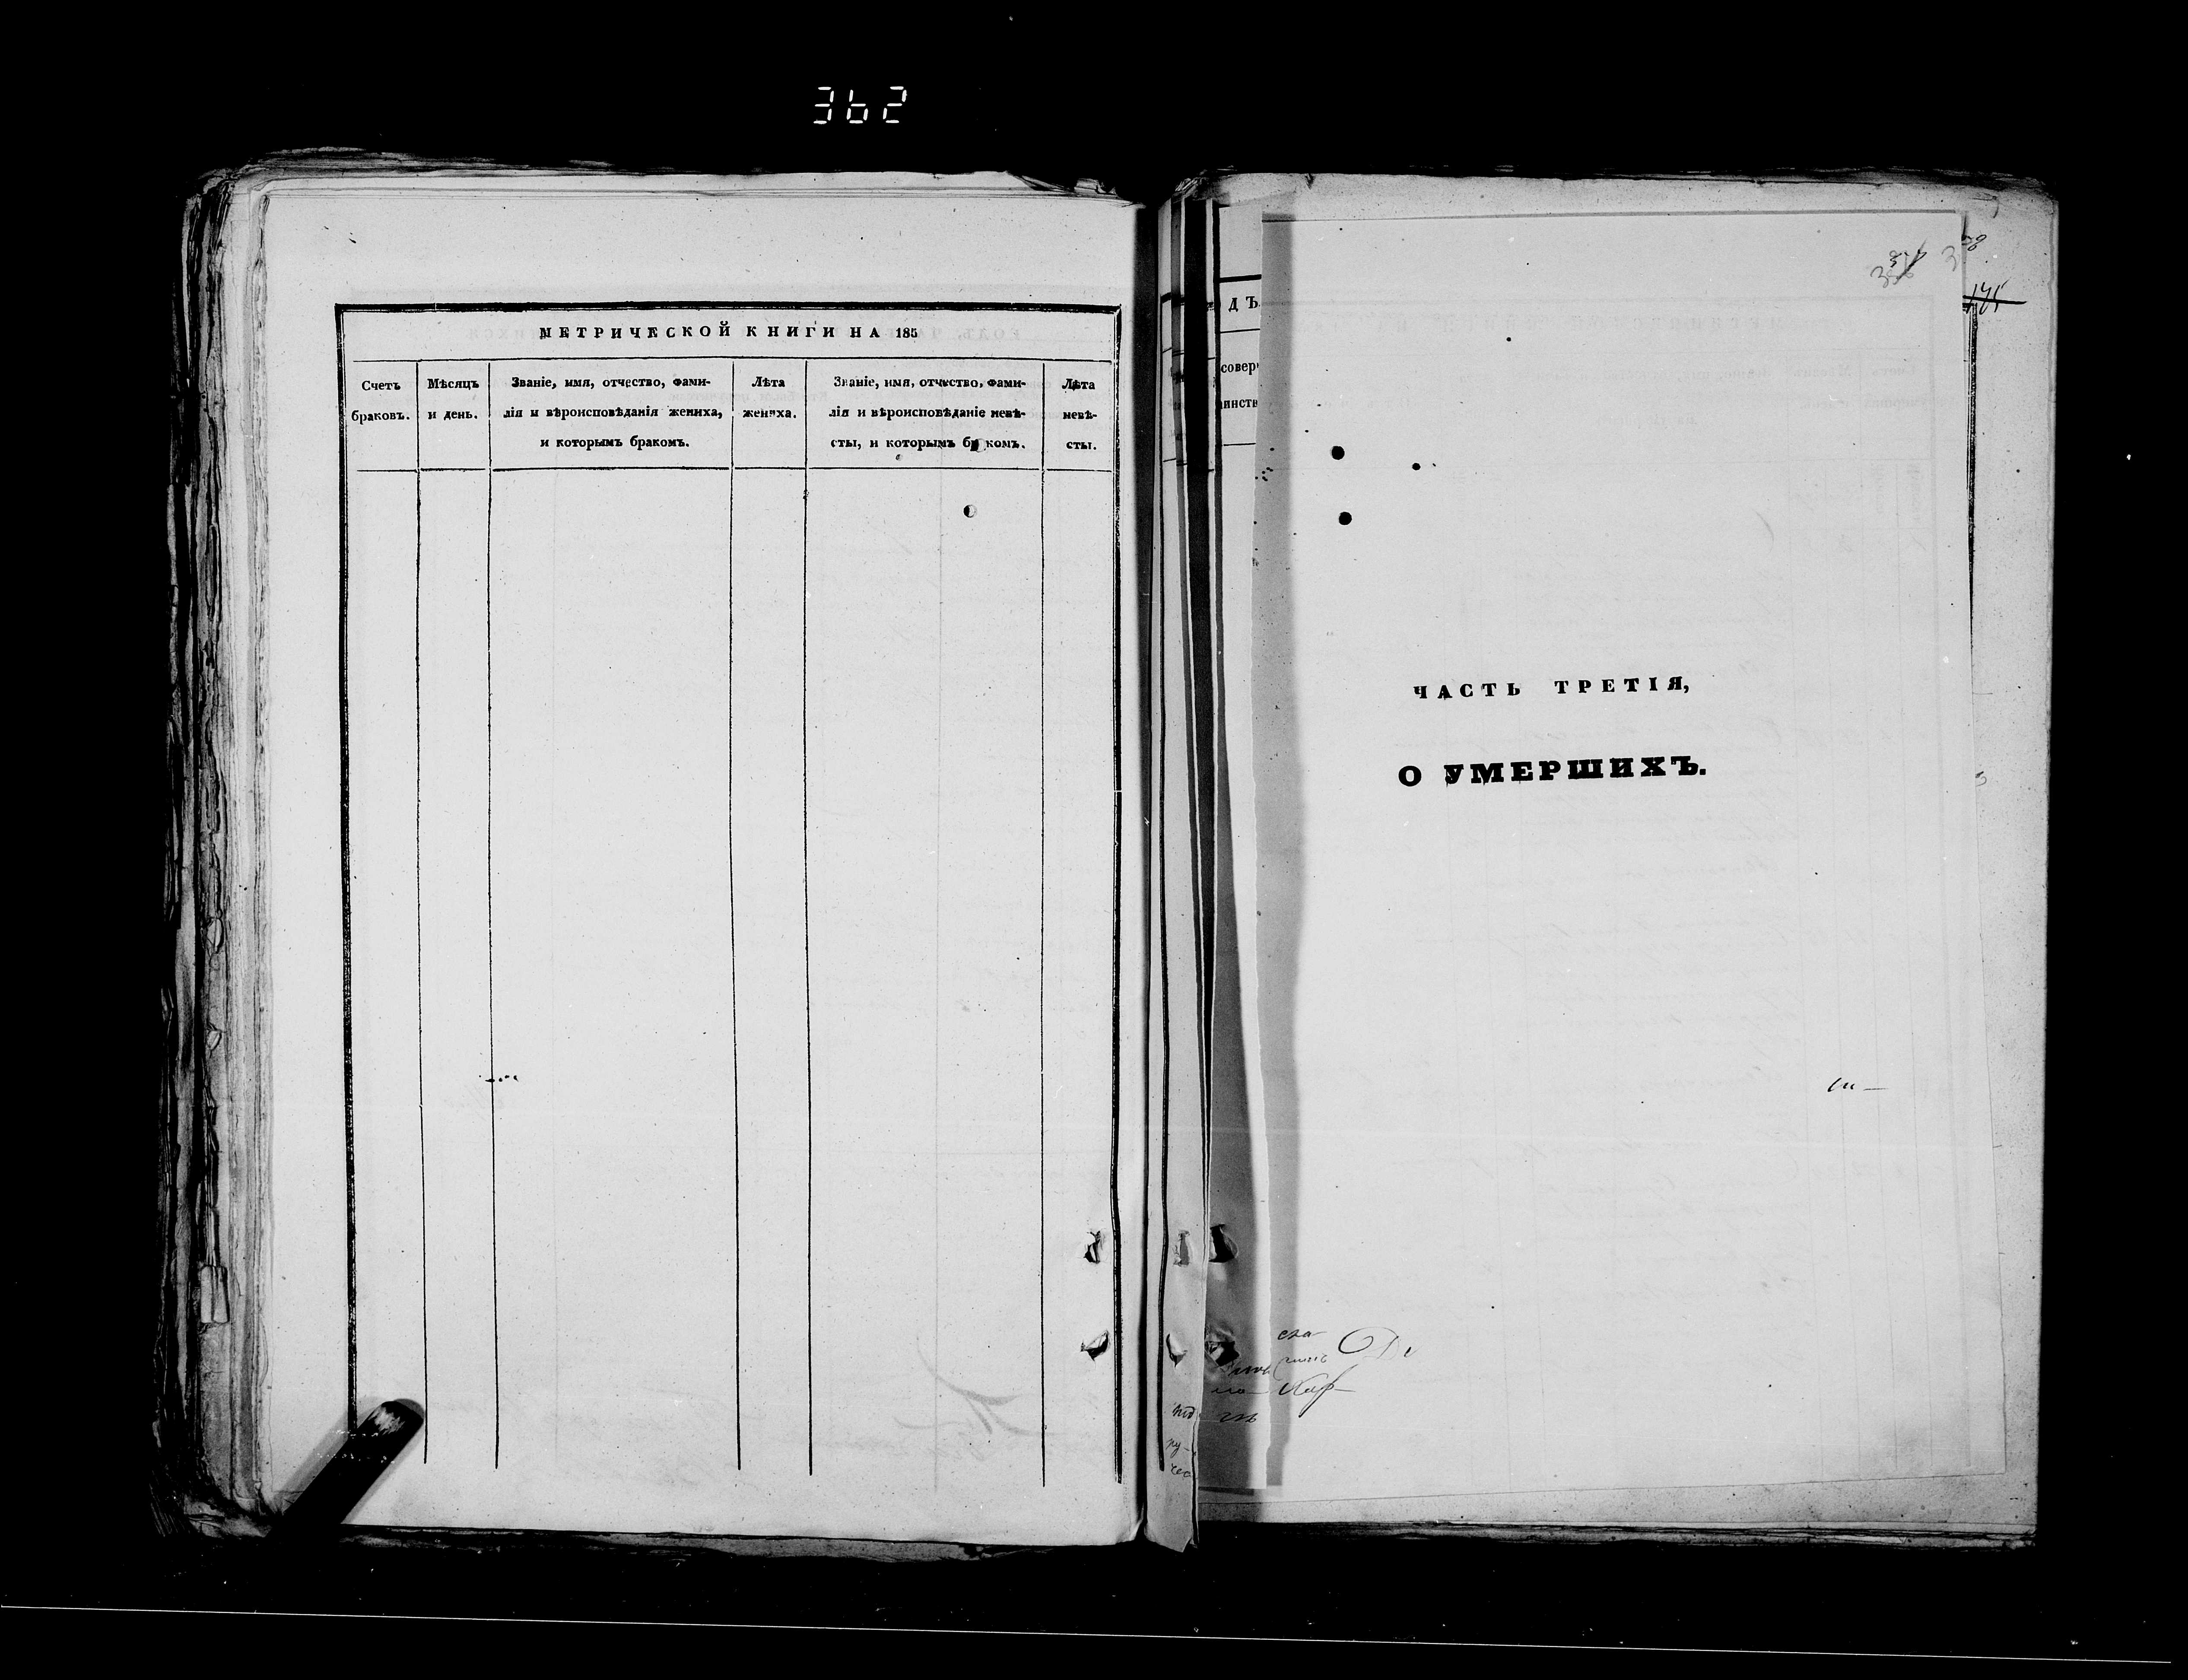 362
МЕТРИЧЕСКОЙ КНИГИ НА 185
Счетъ браковъ.
Мѣсяцъ и день.
Званіе, имя, отчество, фами-
лія и вѣроисповѣданія жениха,
и которымъ бракомъ.
Лѣта жениха.
Званіе, имя, отчество, фами-
лія и вѣроисповѣданіе невѣ-
сты, и которымъ бракомъ.
Лѣта невѣ-
сты.
ДЪ
совер
инств
ЧАСТЬ ТРЕТІЯ,
О УМЕРШИХЪ.